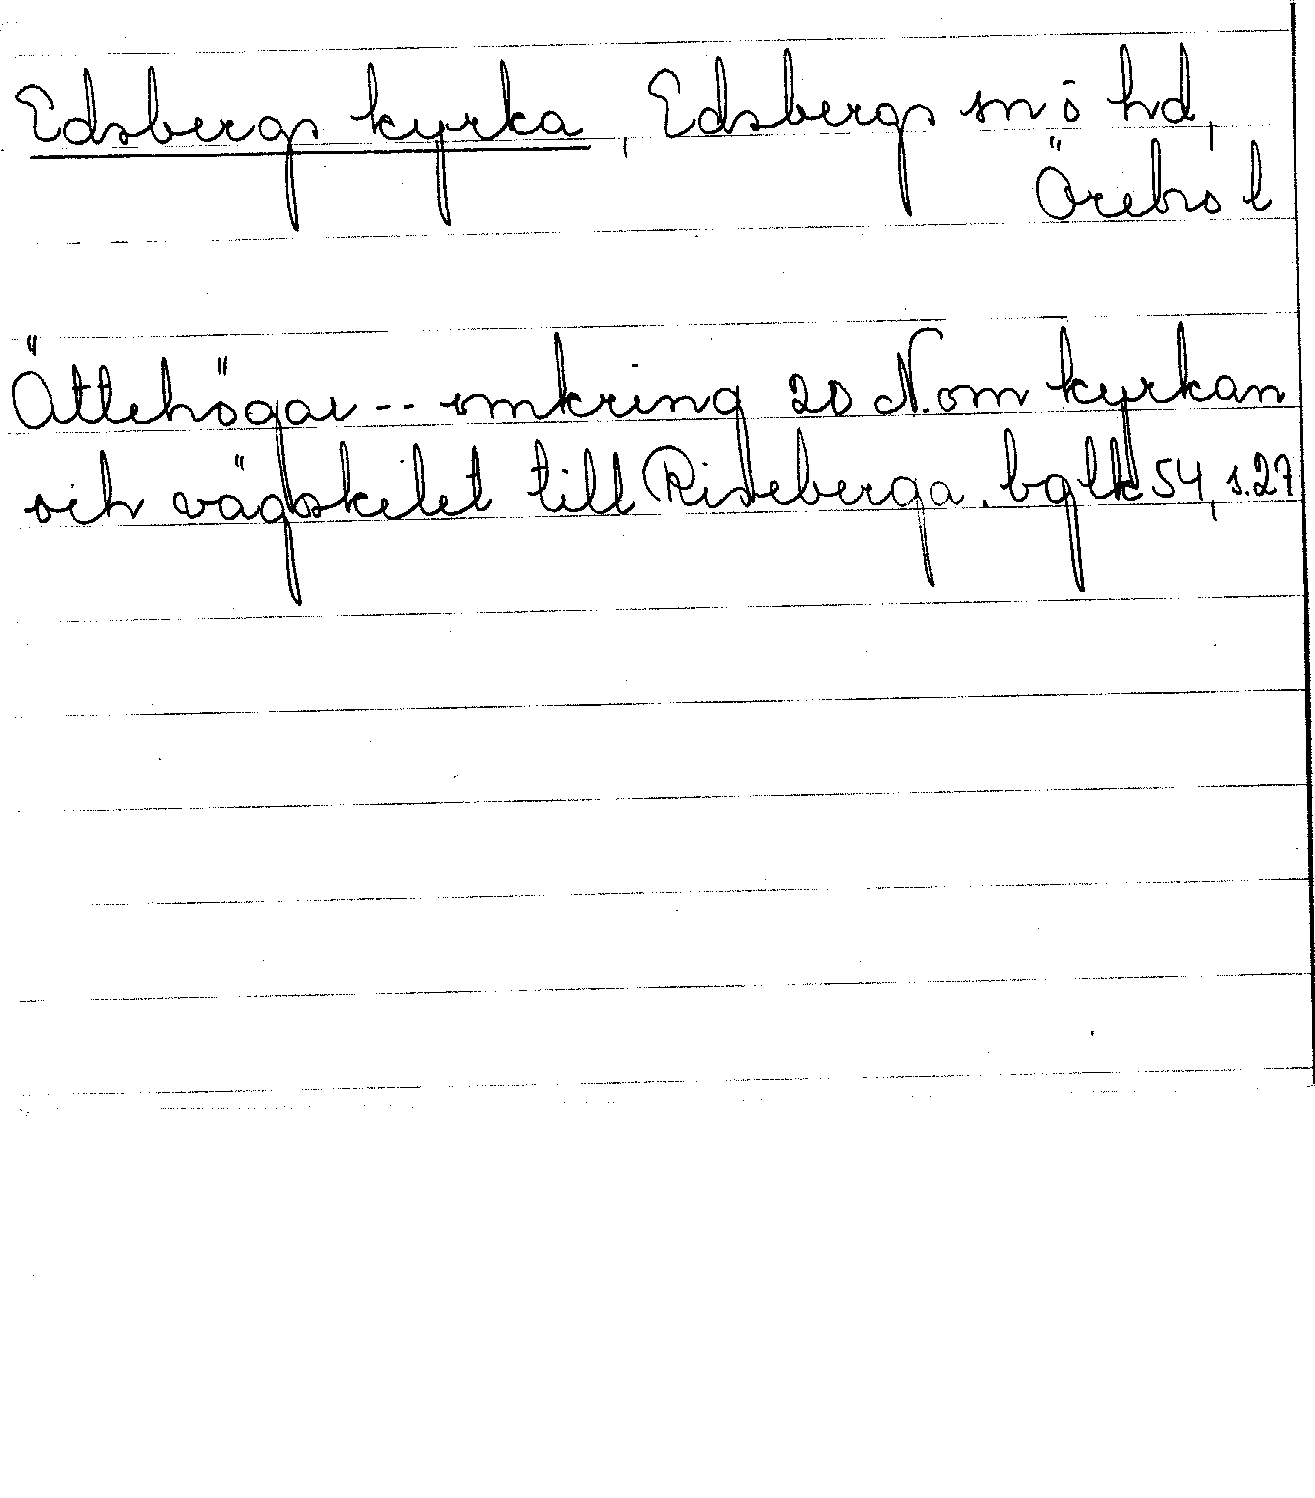 Edsbergs kyrka, Edsbergs sn ö hd,
Örebro l
Ättehögar -- omkring 20 N. om kyrkan
och vägskelet till Riseberga. bglk 54, s.27